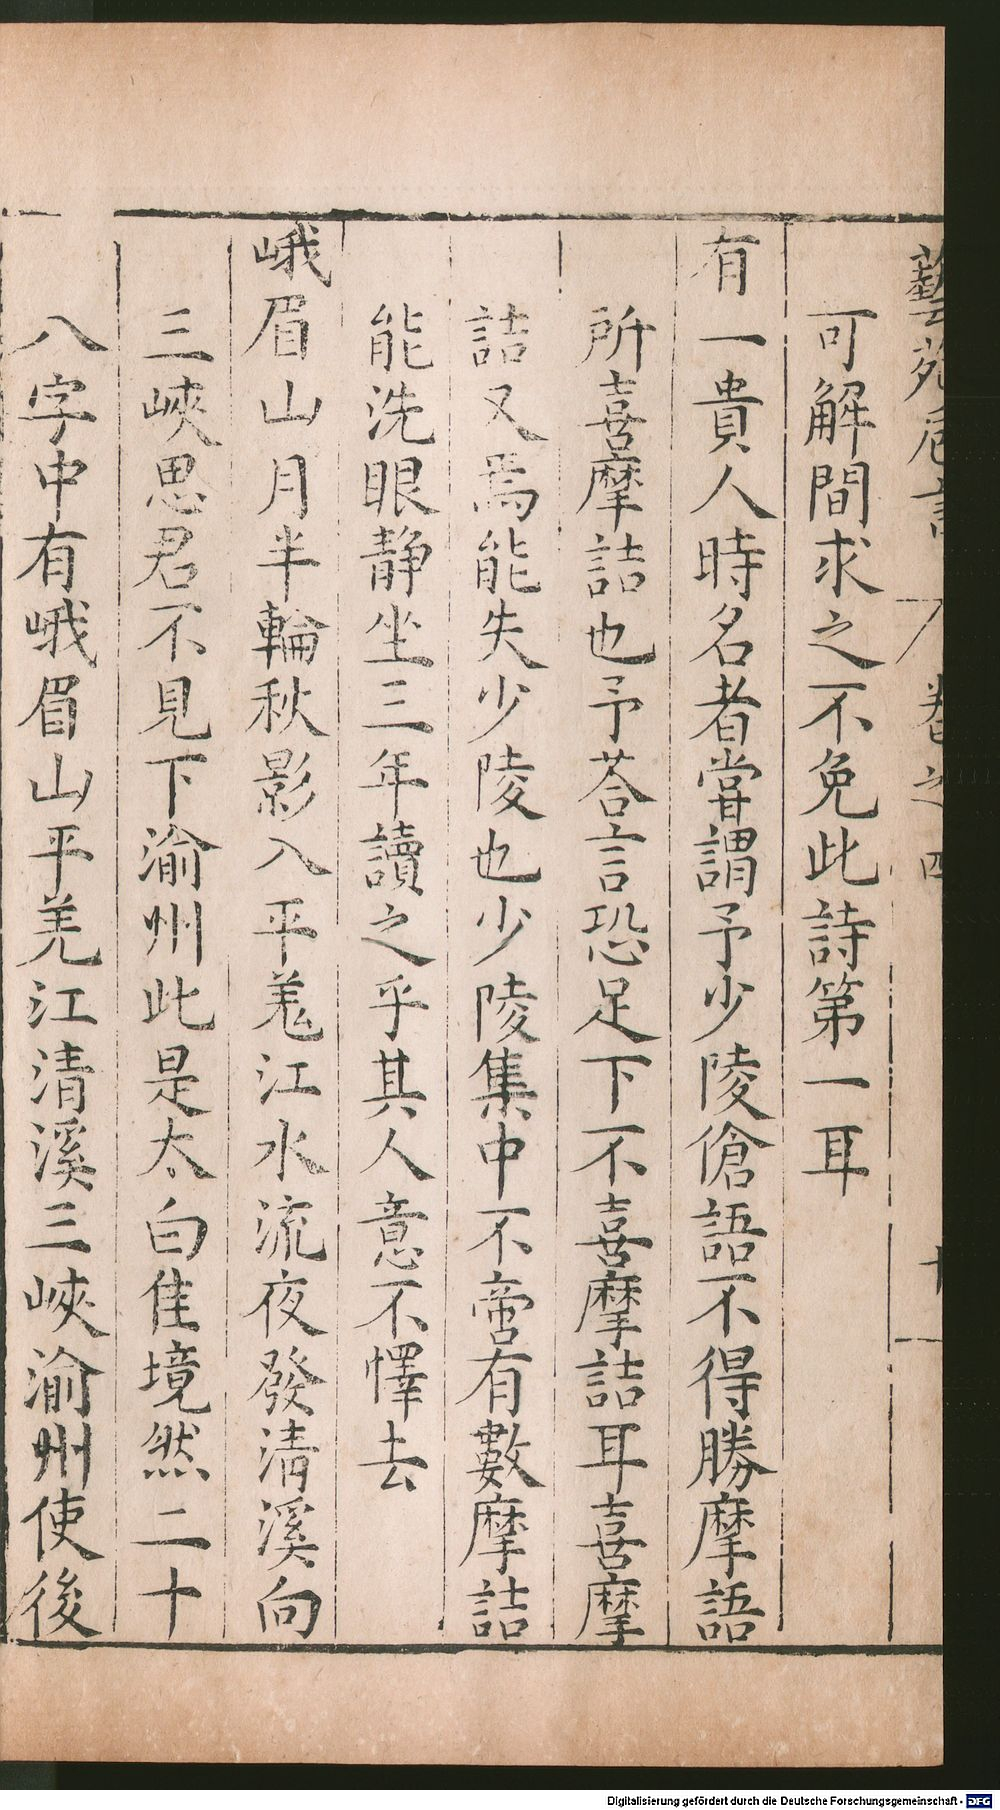 藝苑卮言 卷之四 十
可解間求之不免此詩第一耳
有一貴人時名者嘗謂予少陵傖語不得勝摩語
所喜摩詰也予荅言恐足下不喜摩詰耳喜摩
詰又焉能失少陵也少陵集中不啻有數摩詰
能洗眼靜坐三年讀之乎其人意不懌去
峨眉山月半輪秋影入平羗江水流夜發清溪向
三峽思君不見下渝州此是太白佳境然二十
八字中有峨眉山平羌江清溪三峽渝州使後
Digitalisierung gefördert durch die Deutsche Forschungsgemeinschaft - DFG